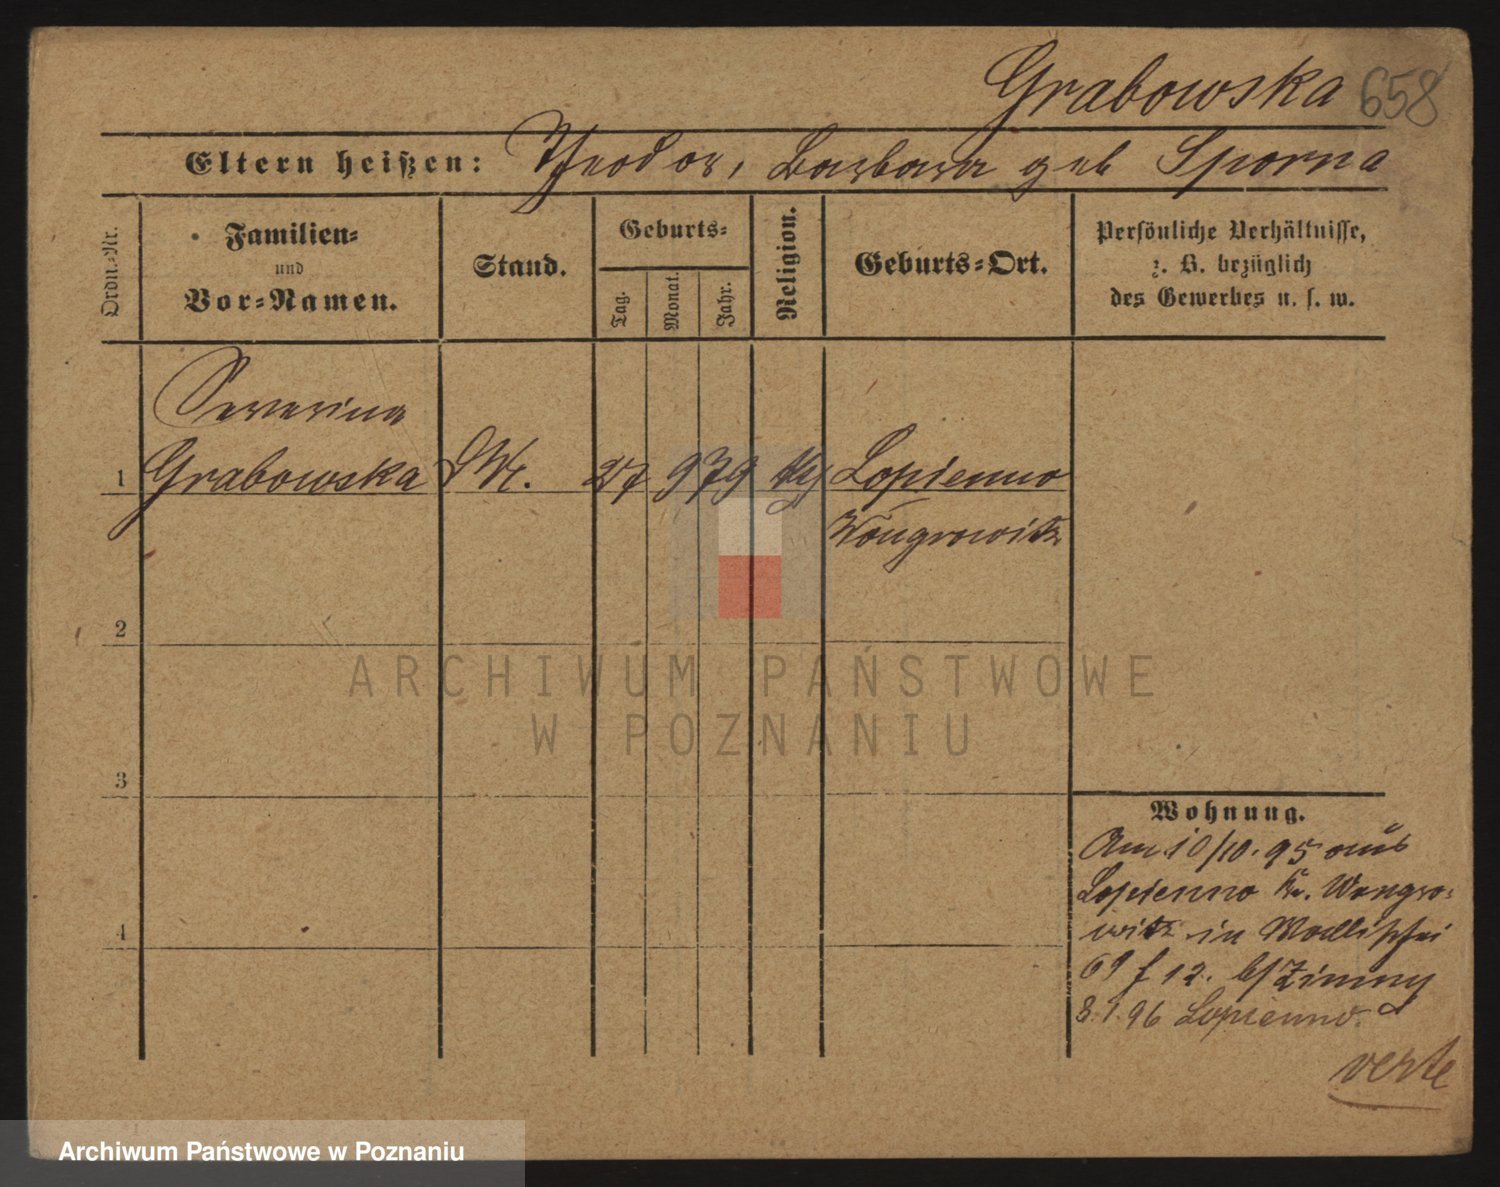 Grabowska 658
Eltern heißen: Theodor, Barbara geb Sporna
Ordn.-Nr.
Familien-
und
Vor-Namen.
Stand.
Geburts-
Tag.
Monat.
Jahr.
Religion.
Geburts-Ort.
Persönliche Verhältnisse,
z. B. bezüglich
des Gewerbes u. s. w.
Severina
1 Grabowska 27 9 79 Lopienno
Wongrowitz
2
3
4
Wohnung.
Am 10/10. 95 aus
Lopienno Kr. Wongro-
witz in
69 f 12. b/Zimny
8.1.96 Lopienno
verte
ARCHIWUM PAŃSTWOWE
W POZNANIU
Archiwum Państwowe w Poznaniu